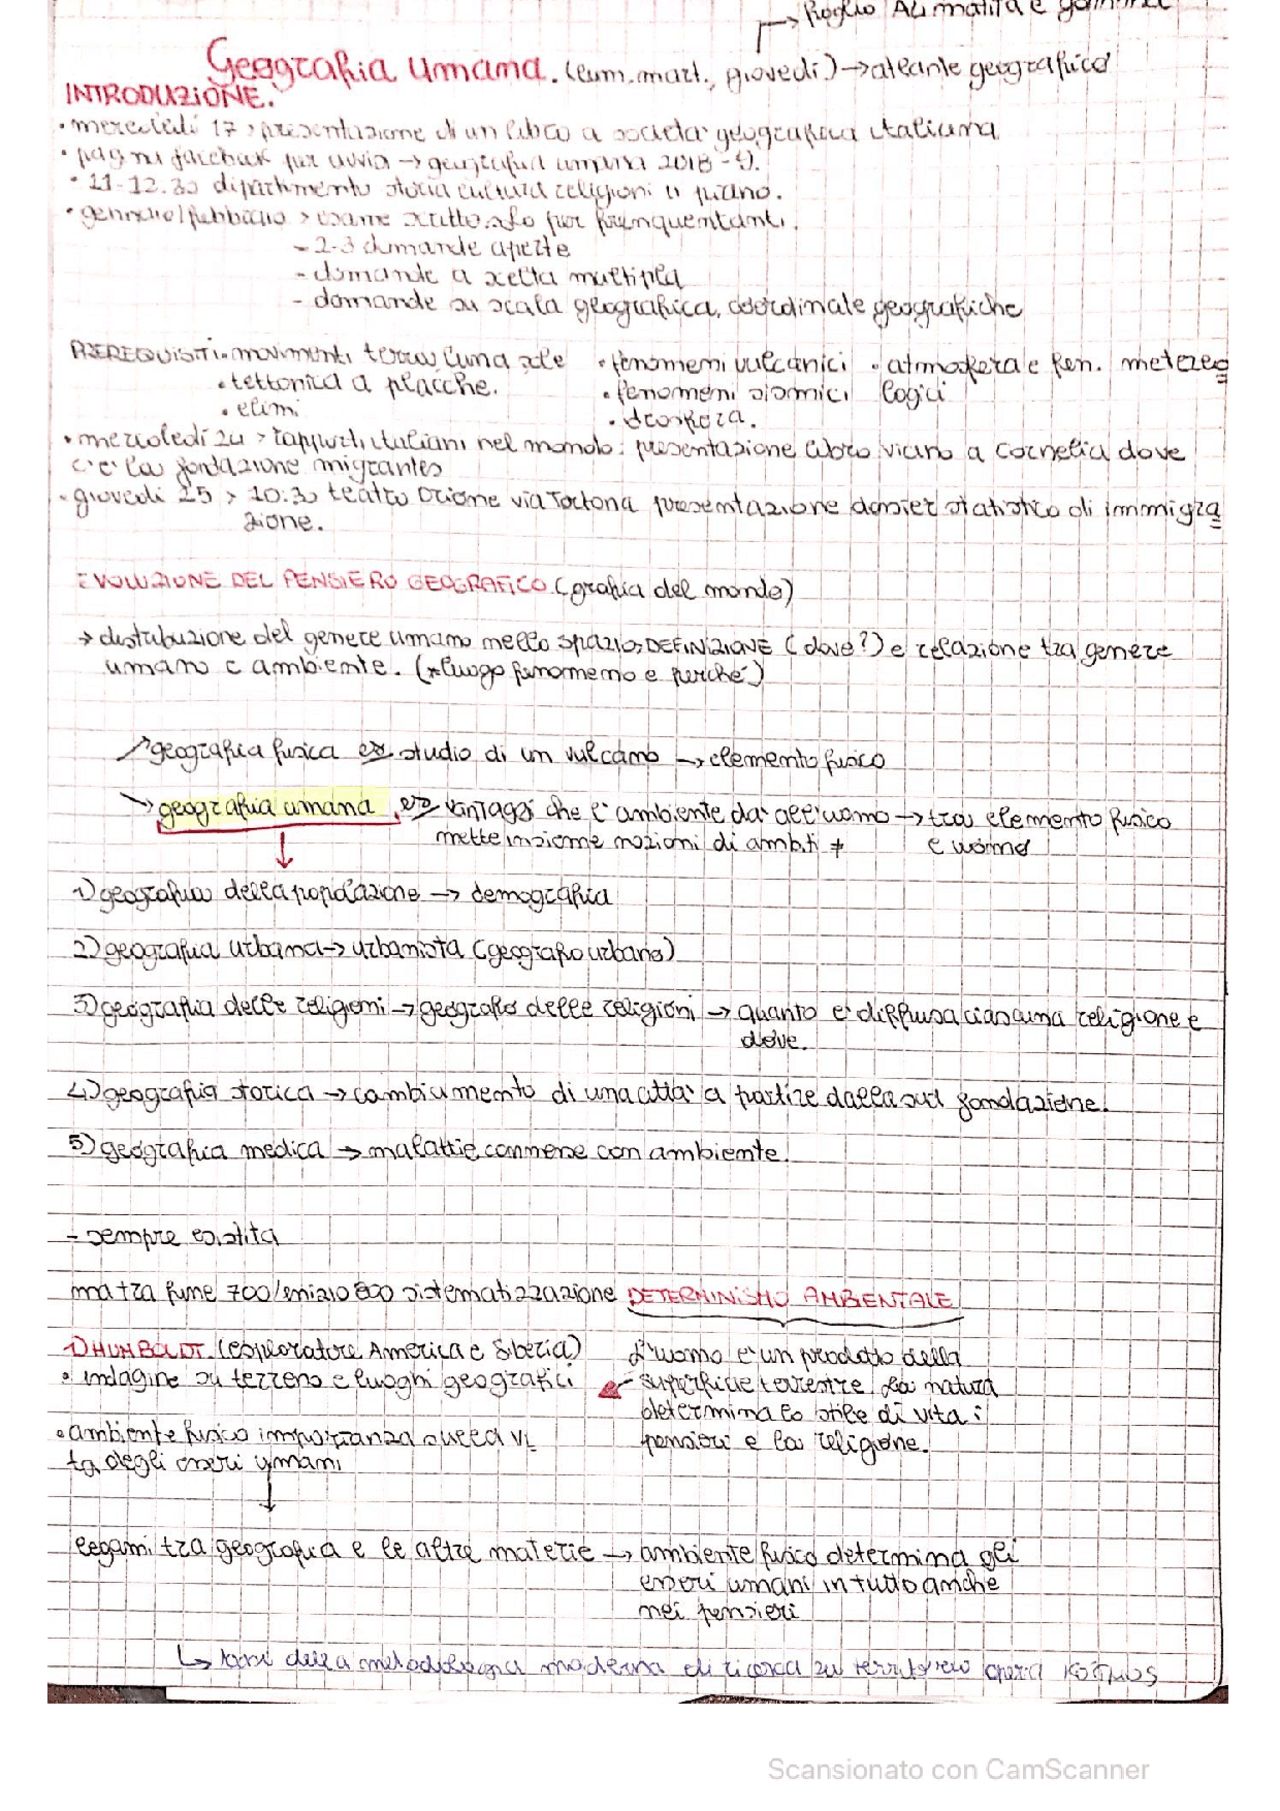 → foglio
Geografia umana. (lun. mart., giovedì) → atlante geografico
INTRODUZIONE.
• mercoledì 17 > presentazione di un libro a società geografica italiana
• pagina facebook per avvisi → geografia umana 2018-19.
• 11-12.30 dipartimento storia cultura religioni II piano.
• gennaio/febbraio > esame scritto solo per frenquentanti.
- 2-3 domande aperte
- domande a scelta multipla
- domande su scala geografica, coordinate geografiche
PREREQUISITI • movimenti terra, luna, sole • fenomeni vulcanici • atmosfera e fen. metereo
• tettonica a placche. • fenomeni sismici logici
• climi • idrosfera.
• mercoledì 24 > rapporti italiani nel mondo: presentazione libro vicino a Cornelia dove
c'è la fondazione migrantes
• giovedì 25 > 10.30 teatro Orione via Tortona presentazione dossier statistico di immigra
zione.
EVOLUZIONE DEL PENSIERO GEOGRAFICO (grafia del mondo)
→ distribuzione del genere umano nello spazio, DEFINIZIONE (dove?) e relazione tra genere
umano e ambiente. (*luogo fenomeno e perché)
↗ geografia fisica es. studio di un vulcano → elemento fisico
↘ geografia umana, es vantaggi che l'ambiente da' all'uomo → tra elemento fisico
mette insieme nozioni di ambiti ≠ e uomo
1) geografia della popolazione → demografia
2) geografia urbana → urbanista (geografo urbano)
3) geografia delle religioni → geografo delle religioni → quanto e' diffusa ciascuna religione e
dove.
4) geografia storica → cambiamento di una città a partire dalla sua fondazione.
5) geografia medica → malattie connesse con ambiente.
- sempre esistita
ma tra fine 700/inizio 800 sistematizzazione DETERMINISMO AMBIENTALE
1) HUMBOLDT. (esploratore America e Siberia) L'uomo e' un prodotto della
• indagine su terreno e luoghi geografici superficie terrestre. La natura
determina lo stile di vita:
• ambiente fisico importanza sulla vi pensieri e la religione.
ta degli esseri umani
legami tra geografia e le altre materie → ambiente fisico determina gli
esseri umani in tutto anche
nei pensieri
↳ basi della metodologia moderna di ricerca su territorio opera KOSMOS
Scansionato con CamScanner